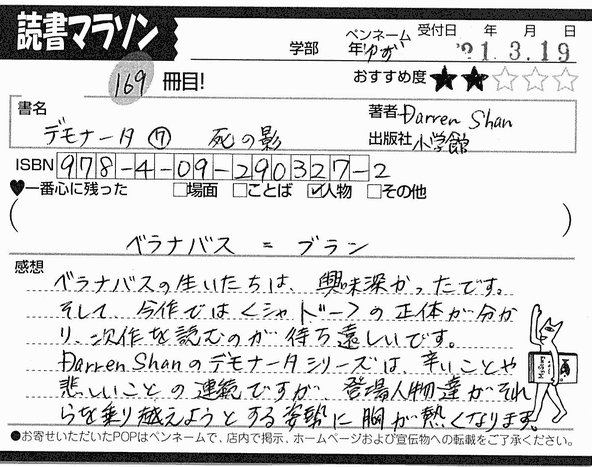 読書マラソン
学部 年 ペンネーム ゆが 受付日 年 月 日
'21.3.19
169 冊目!
おすすめ度 ★★☆☆☆
書名
デモナータ ⑦ 死の影
著者 Darren Shan
出版社 小学館
ISBN 978-4-09-290327-2
♥一番心に残った □場面 □ことば ☑人物 □その他
( ベラナバス = ブラン )
感想
ベラナバスの生いたちは、興味深かったです。
そして、今作では〈シャドー〉の正体が分か
り、次作を読むのが待ち遠しいです。
Darren Shanのデモナータシリーズは、辛いことや
悲しいことの連続ですが、登場人物達がそれ
らを乗り越えようとする姿勢に胸が熱くなります。
●お寄せいただいたPOPはペンネームで、店内で掲示、ホームページおよび宣伝物への転載をご了承ください。